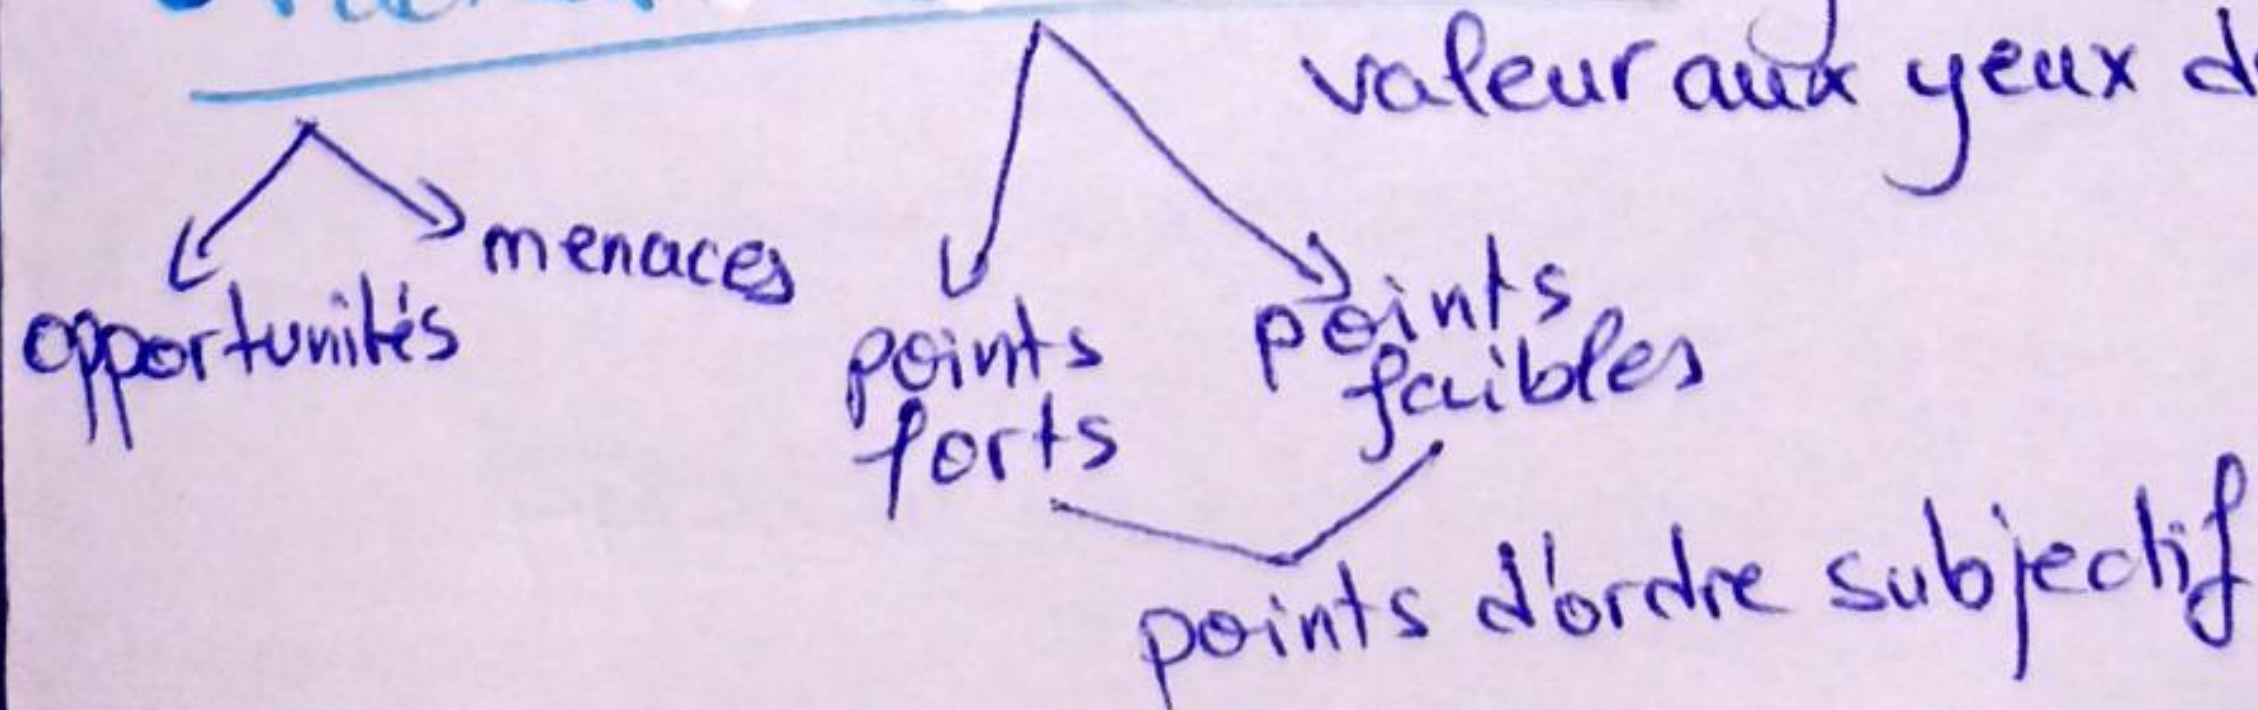 valeur aux yeux
opportunités
menaces
points
forts
points
faibles
points d'ordre subjectif